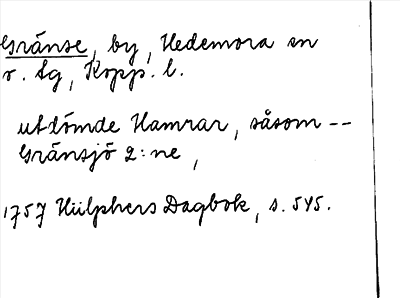 Gränse, by, Hedemora sn
o. tg, Kopp. l.
utdömde Hamrar, såsom --
Gränsjö 2:ne,
1757 Hülphers Dagbok, s. 545.